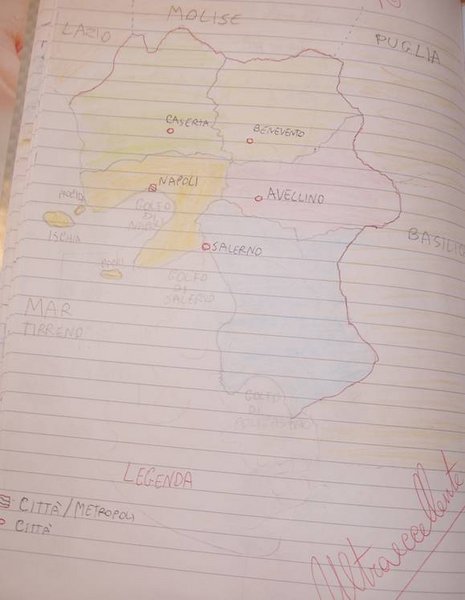 MOLISE
LAZIO
PUGLIA
CASERTA
BENEVENTO
NAPOLI
AVELLINO
GOLFO
DI
NAPOLI
ISCHIA
SALERNO
BASILIC
CAPRI
GOLFO
DI
SALERNO
MAR
TIRRENO
GOLFO
DI
LEGENDA
CITTÀ/METROPOLI
CITTÀ
Ultraeccellente